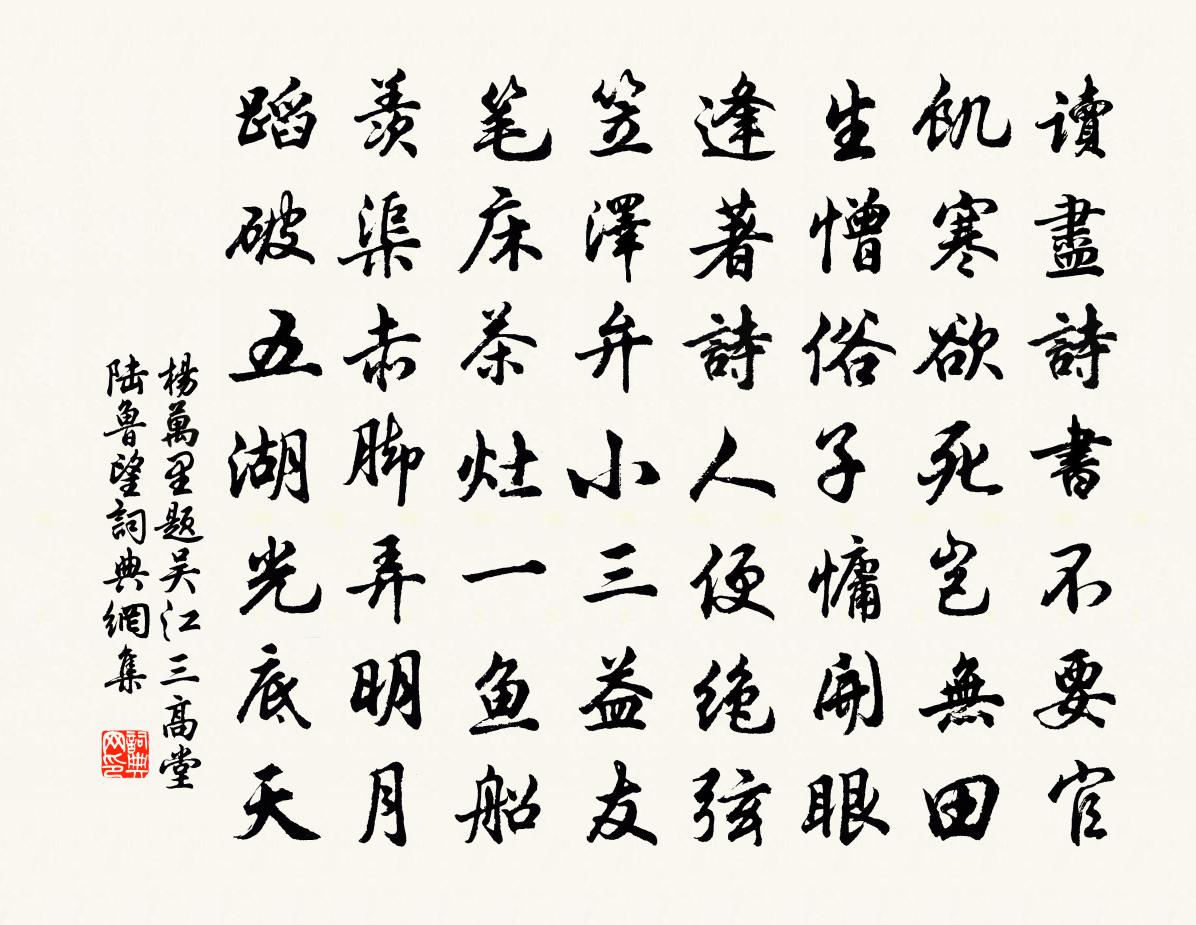 讀盡詩書不要官
飢寒欲死豈無田
生憎俗子慵開眼
逢著詩人便絶弦
笠澤弁小三益友
笔床茶灶一鱼船
羨渠赤脚弄明月
蹈破五湖光底天
楊萬里題吴江三高堂
陆魯望詞典網集
詞典网印